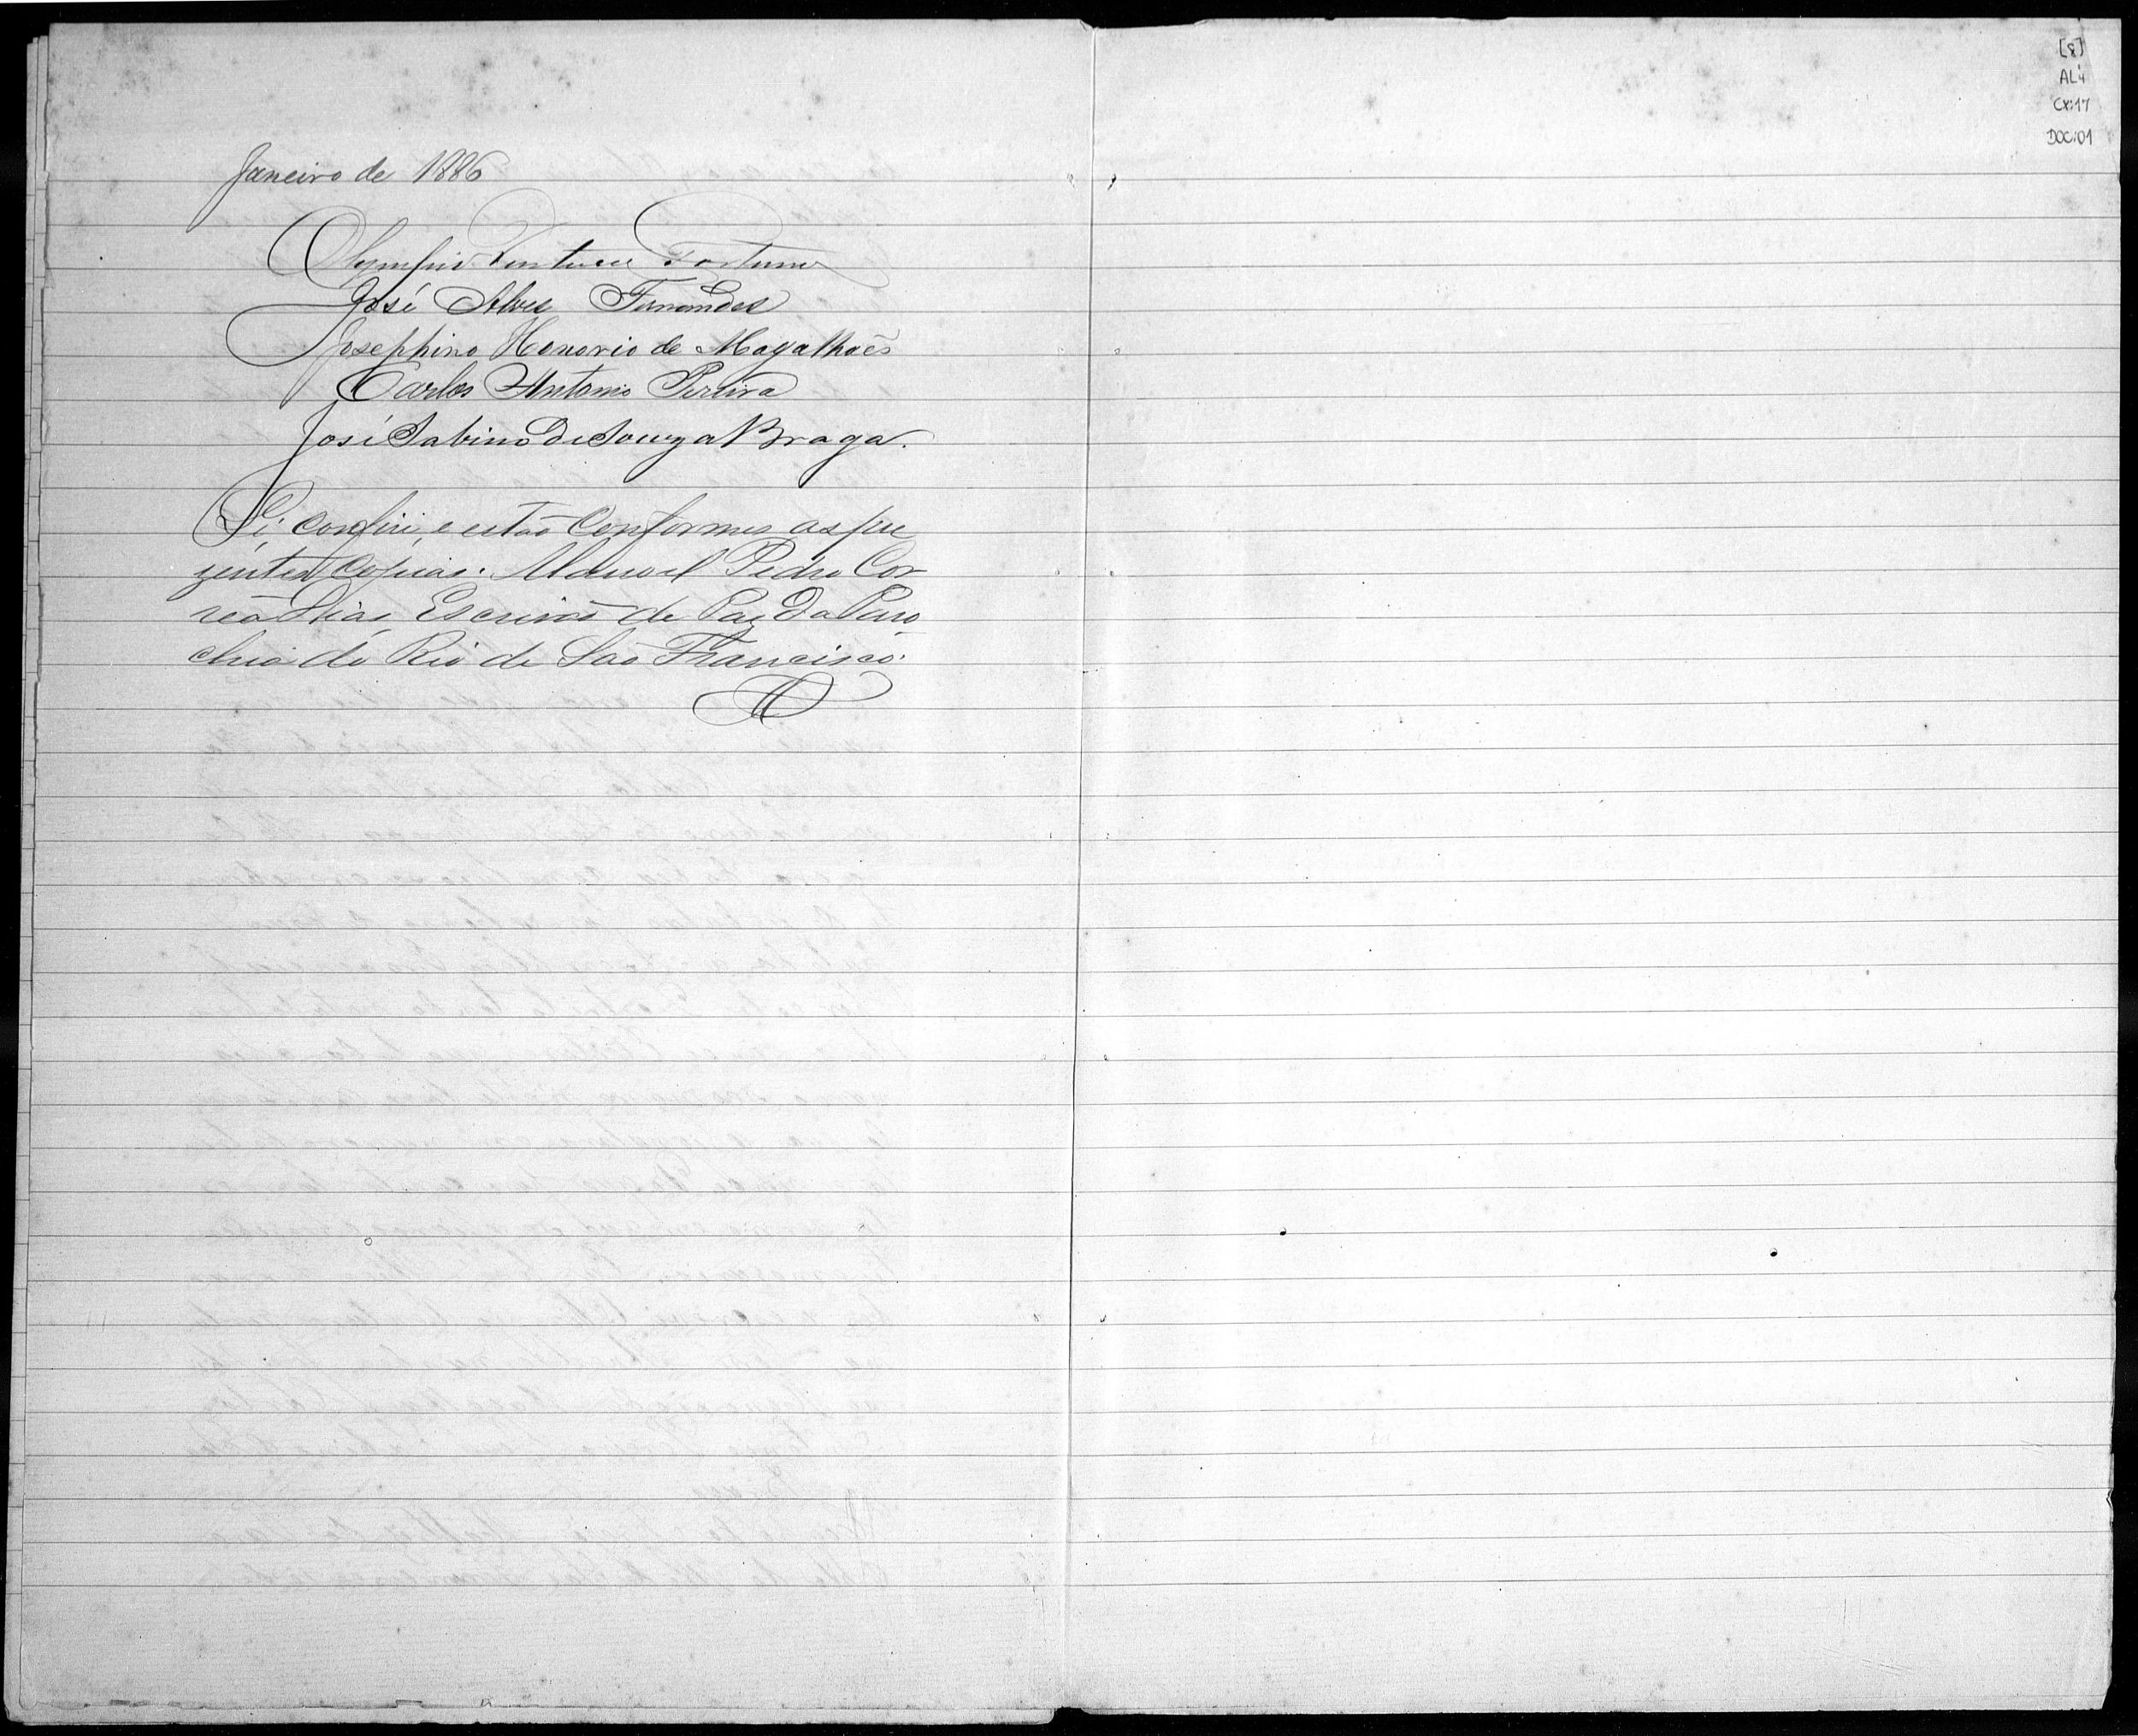 Janeiro de 1886
Olympio Ventura Fortuna
José Alves Fernandes
Josephino Honorio de Magalhães
Carlos Antonio Pereira
José Sabino De Souza Braga.
Li, conferi, e estão conformes as pre
zentes Copias. Manoel Pedro Cor
rea Dias, Escrivão de Paz da Paro
chia do Rio de São Francisco.
[8]
AL4
CX:17
DOC:01